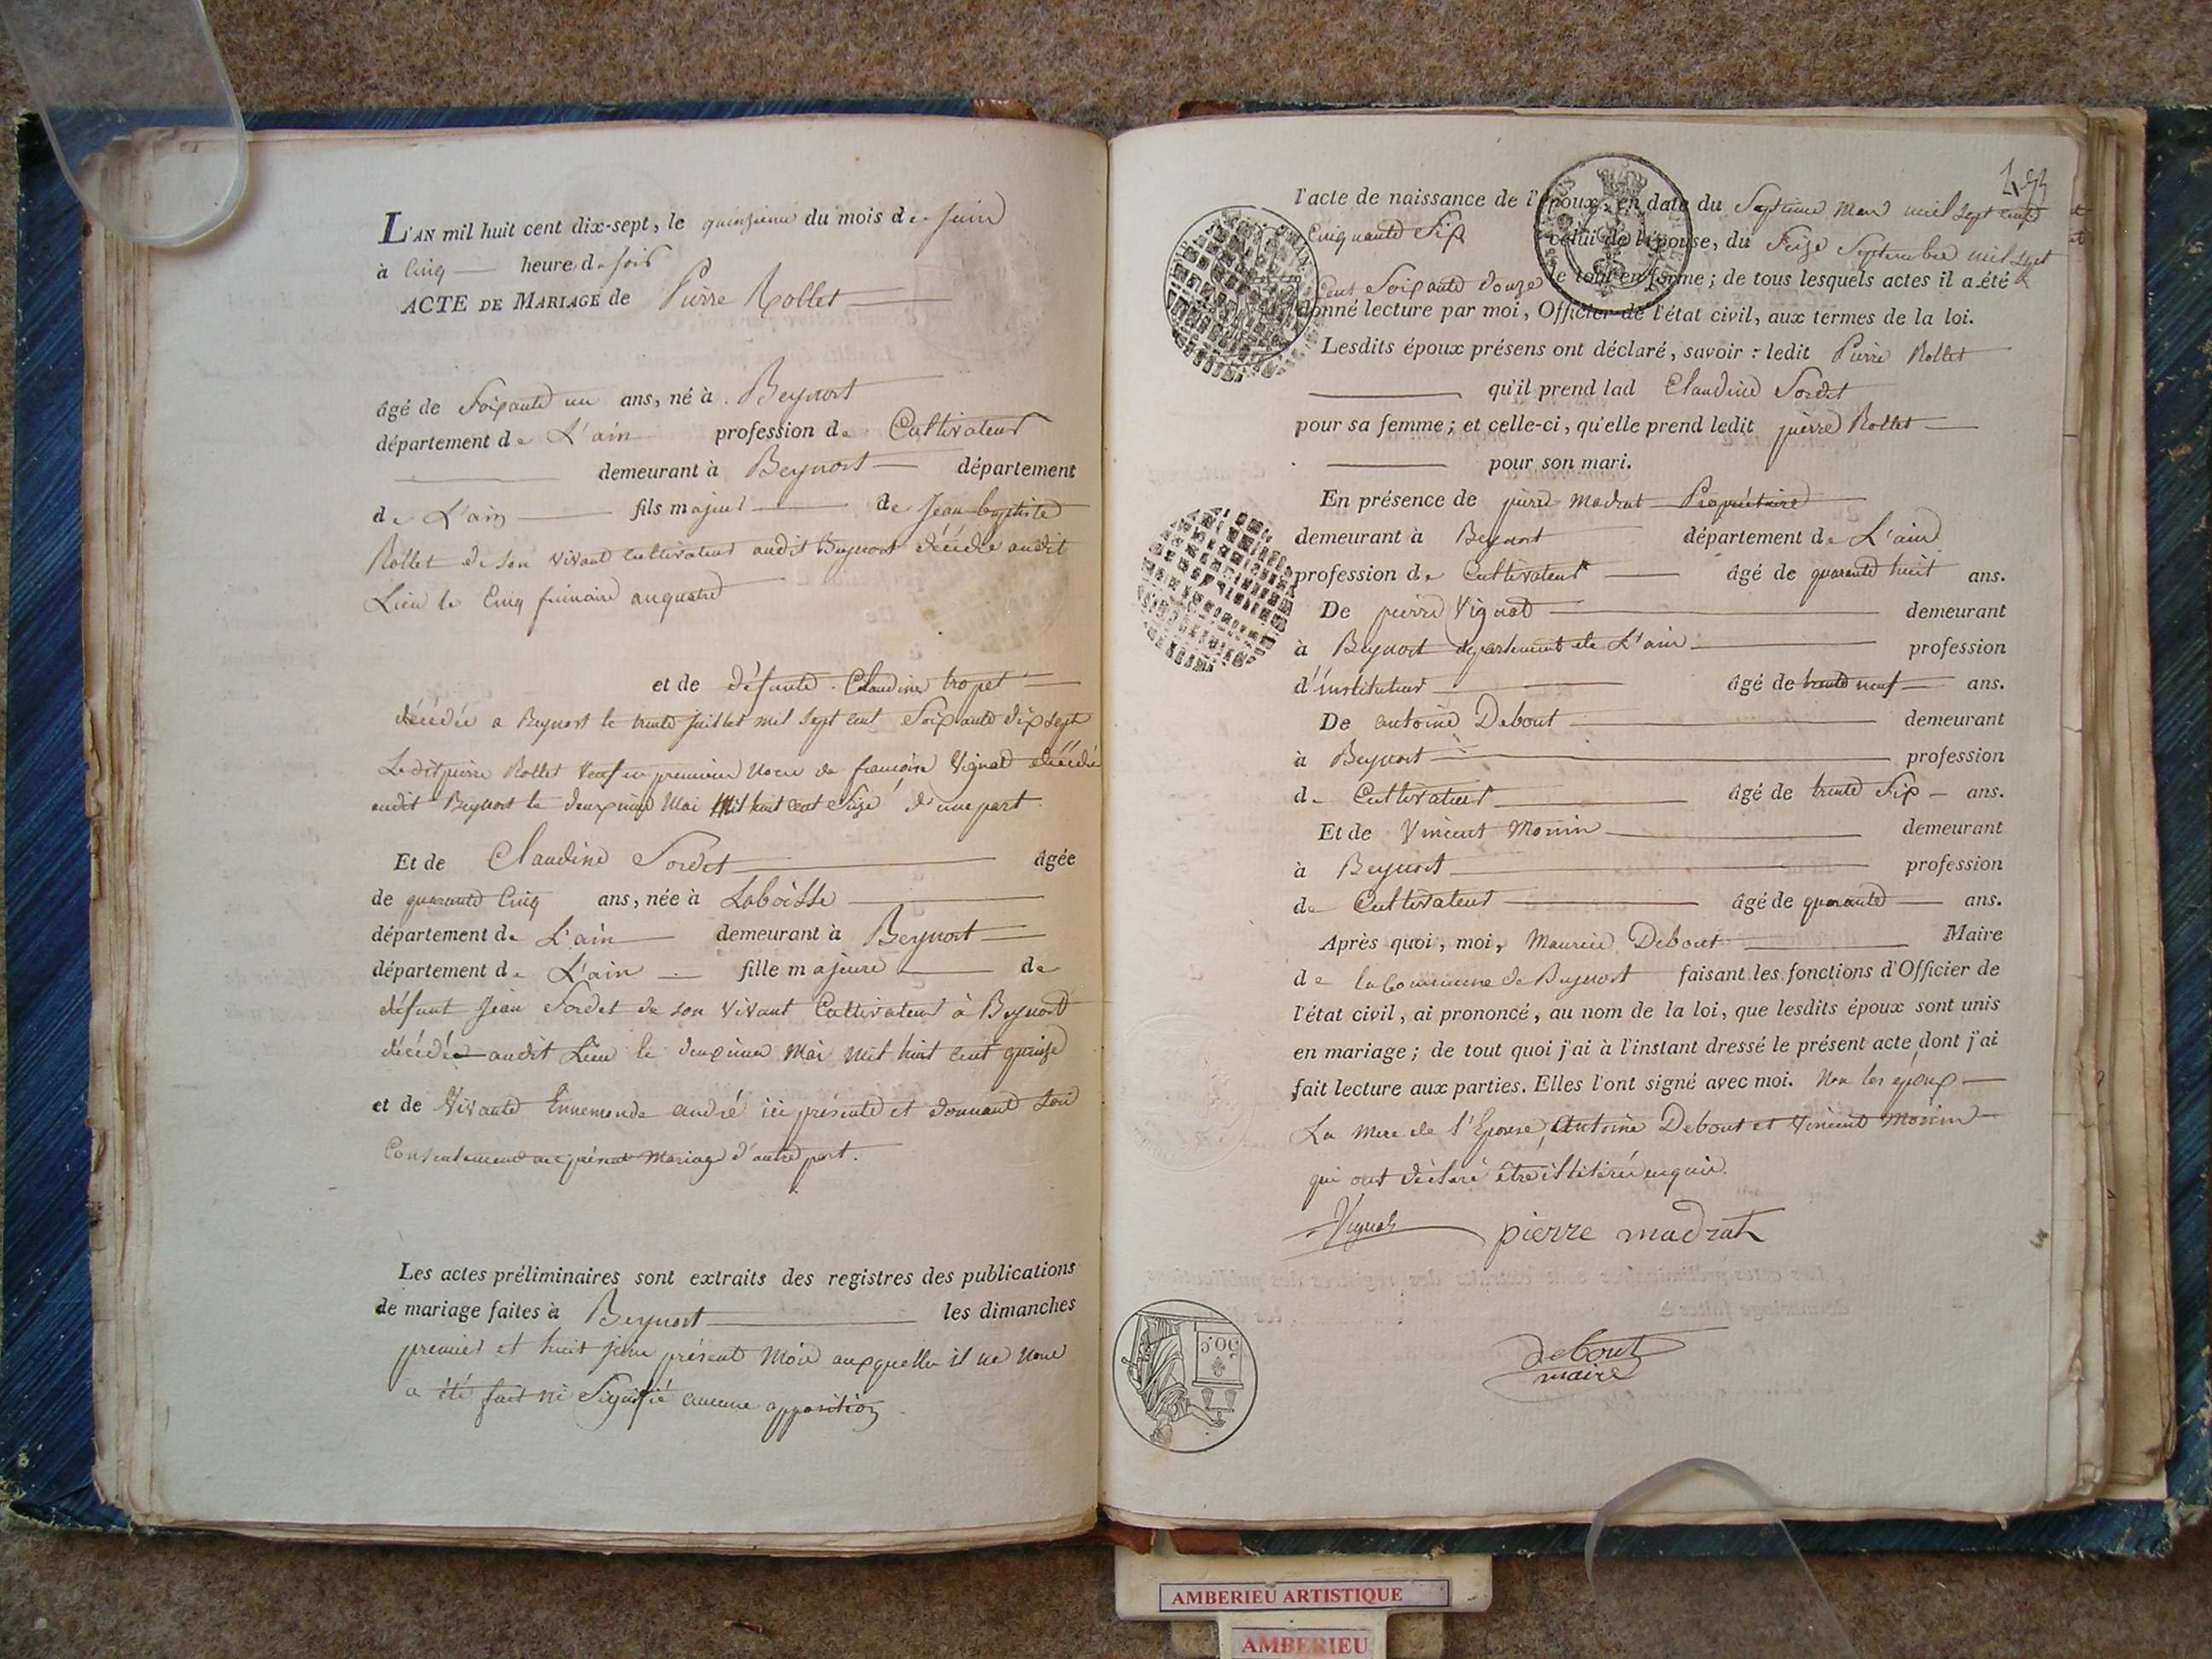 L'AN mil huit cent dix-sept, le quinzieme du mois de Juin
à Cinq heure du soir
ACTE DE MARIAGE de Pierre Rollet
âgé de Soixante un ans, né à Beynost
département de L'ain profession de Cultivateur
demeurant à Beynost département
de L'ain fils majeur de Jean baptiste
Rollet de son vivant cultivateur audit Beynost décédé audit
Lieu le Cinq frimaire an quatre
et de défunte Claudine tropet
décédée a Beynost le trente juillet mil sept cent Soixante dix sept
Ledit pierre Rollet Veuf en premiere Noce de francoise Vignat décédée
audit Beynost le deuxieme Mai Mil huit cent Seize d'une part
Et de Claudine Sordet âgée
de quarante Cinq ans, née à Laboisse
département de L'ain demeurant à Beynost
département de L'ain fille majeure de
défunt Jean Sordet de son Vivant Cultivateur à Beynost
décédé audit Lieu le deuxieme Mai mil huit cent quinze
et de Vivante Ennemonde andré ici présente et donnant son
Consentement au présent Mariage d'autre part.
Les actes préliminaires sont extraits des registres des publications
de mariage faites à Beynost les dimanches
premier et huit juin présent Mois auxquelles il ne nous
a été fait ni Signifié aucune opposition
l'acte de naissance de l'époux, en date du Septieme Mars mil sept cent
Cinquante Six celui de l'épouse, du Seize Septembre mil sept
Cent Soixante douze le tout en forme ; de tous lesquels actes il a été
donné lecture par moi, Officier de l'état civil, aux termes de la loi.
Lesdits époux présens ont déclaré, savoir : ledit Pierre Rollet
qu'il prend lad Claudine Sordet
pour sa femme ; et celle-ci, qu'elle prend ledit pierre Rollet
pour son mari.
En présence de pierre Madrat Propriétaire
demeurant à Beynost département de L'ain
profession de Cultivateur âgé de quarante huit ans.
De pierre Vignat demeurant
à Beynost departement de L'ain profession
d'instituteur âgé de trente neuf ans.
De antoine Debout demeurant
à Beynost profession
de Cultivateur âgé de trente Six ans.
Et de Vincent Monin demeurant
à Beynost profession
de Cultivateur âgé de quarante ans.
Après quoi, moi, Maurice Debout Maire
de la Commune de Beynost faisant les fonctions d'Officier de
l'état civil, ai prononcé, au nom de la loi, que lesdits époux sont unis
en mariage ; de tout quoi j'ai à l'instant dressé le présent acte, dont j'ai
fait lecture aux parties. Elles l'ont signé avec moi. Non les époux
La Mere de l'Epouse, Antoine Debout et Vincent Monin
qui ont déclaré être illitéré
Vignat pierre madrat
debout
maire
50.c
AMBERIEU ARTISTIQUE
AMBERIEU